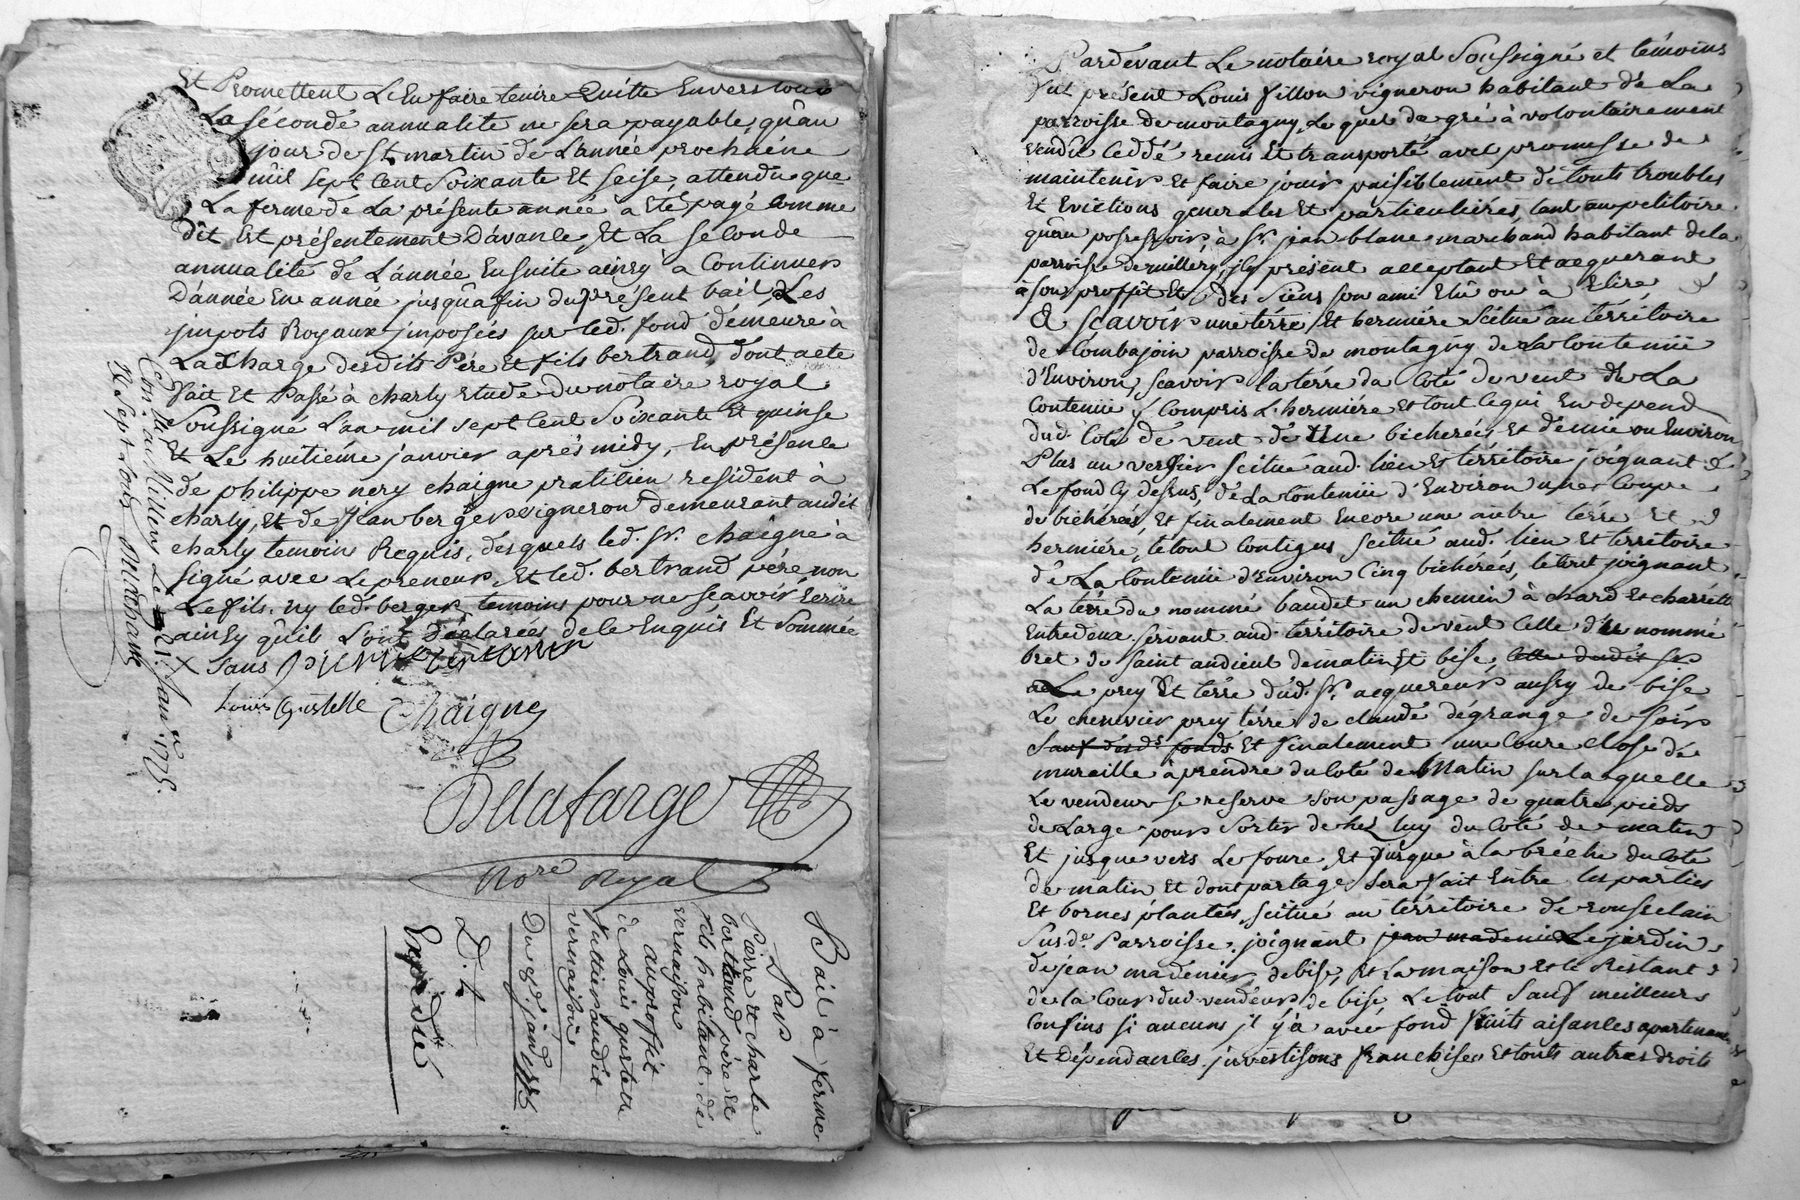 Et Promettent L'En faire tenire Quitte Envers tous
La sécondé annualité ne sera payable, qu'au
jour de St. martin de L'année prochaine
mil sept Cent Soixante Et seise, attendu que
La ferme de La présente année a Eté payé Comme
dit Est présentement D'avance, Et La seconde
annualité dé L'année Ensuite ainsy a Continuer
D'année En année jusqu'a fin du présent bail, Les
jmpots Royaux jmposées sur led. fond démeure à
La Charge desdits Pére Et fils bertrand, dont acte
fait Et Passé à charly Etude du notaire royal
Soussigne L'an mil sept Cent Soixante Et quinse
Et Le huitiéme janvier aprés midy, En présence
dé philippe nery chaigne praticien resident à
charly, Et de Jean berger vigneron demeurant audit
charly temoins Requis, desquels led. Sr. chaigne à
signé avec Le preneur, Et led. bertrand pére non
Le fils, ny led. berger, temoins pour ne scavoir Ecrire
ainsy qu'ils L'ont Déclarées de ce Enquis Et Sommée
X Sans
Louis Gustelle Chaigne
Delafarge
Nore Royal
Conllé. au Millery Le 21. Janvr. 1775.
R Sept sols
Bail à ferme
Par
Pierre et charle
bertrand pére Et
fils habitant dé
vernaison
au proffit
de Louis gustelle
vernaison
Du 8e. janv. 1775
D. 4
Expediée
Pardevant Le notaire royal Soussigné et témoins
fut présent Louis fillon vigneron habitant dé La
parroisse de montagny, Le quel de gré à volontairement
vendu Ceddé remis Et transporté avec promesse de
maintenir Et faire jouir paisiblement dé touts troubles
Et Evictions generalles Et particuliéres, tant au petitoire
qu'au possessoir, à Sr. jean blanc marchand habitant de la
parroisse de millery, jcy présent acceptant Et acquerant
à son proffit Et des Siéns son ami Elû ou à Elire
A Scavoir une térre Et hermiére Scitué au térritoire
de Combajoin parroisse de montagny de La Contenüe
d'Environ, scavoir la térre du Coté de vent de La
Contenüe y Compris L'hermiére Et tout Cequi En depend
dud. Coté de vent de Une bicherées Et démie ou Environ
Plus un verger scitué aud. lieu Et térritoire joignant
Le fond Cy dessus, dé La Contenüe d'Environ une Coupe
de bichérées, Et finalement Encore une autre térre Et
hermiére, le tout Contigus, scitué aud. lieu Et territoire
dé La Contenüe d'Environ Cinq bichérées, le tout joignant
La térre du nommé baudet un chemin à chard Et charrétt
Entredeux servant aud. térritoire de vent Celle du nommé
bret de saint andient de matin Et bise, Celle dudit Sr
Le prey Et térre dud. Sr. acquereur aussy de bise
Le chenevier prey térré de claude dégrange de soir
Sauf desds. fonds Et finalement une Coure close dé
muraille à prendre du Coté de Matin sur laquelle
Le vendeur se reserve son passage de quatre pieds
de Large pour Sortir de chez luy du Coté de matin
Et jusque vers Le foure, Et jusque à la bréche du Coté
de matin Et dont partage sera fait Entre les parties
Et bornes plantées, scitué au térritoire de rousselain
Susde. Parroisse joignant jean madenier Le jardin
de jean madénier, de bise, Et La maison Et le Restant
de la Cour dud. vendeur de bise Le tout Sauf meilleurs
Confins si aucuns jl y à avec fond fruits aisances apartenan
Et Dépendances, jnvestisons franchises Et touts autres droits